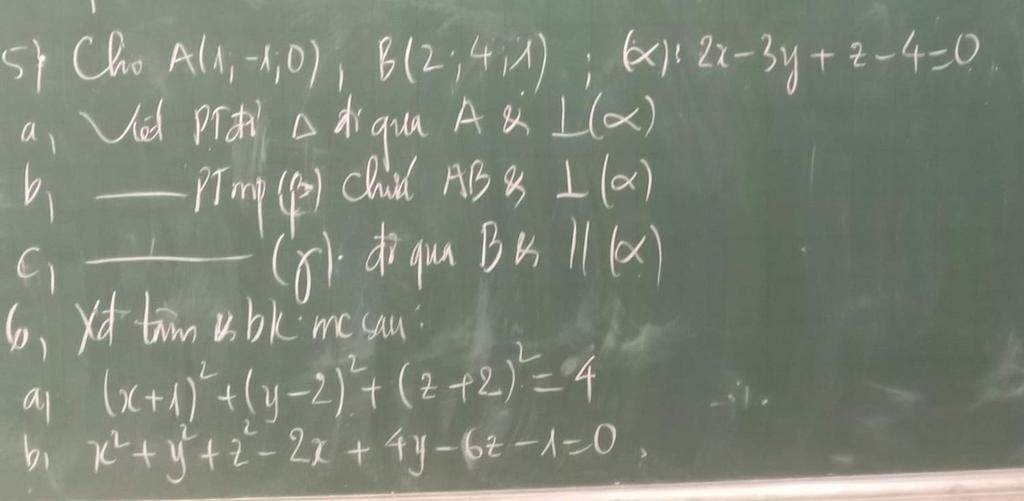 5) Cho A(1;-1;0), B(2;4;1); (α): 2x-3y+z-4=0.
a, Viết PTđt Δ đi qua A & ⊥(α)
b, —— PTmp(β) chứa AB & ⊥(α)
c, ———— (γ). đi qua B & // (α)
6, Xđ tâm & bk mc sau:
a, (x+1)²+(y-2)²+(z+2)²=4
b, x²+y²+z²-2x+4y-6z-1=0.